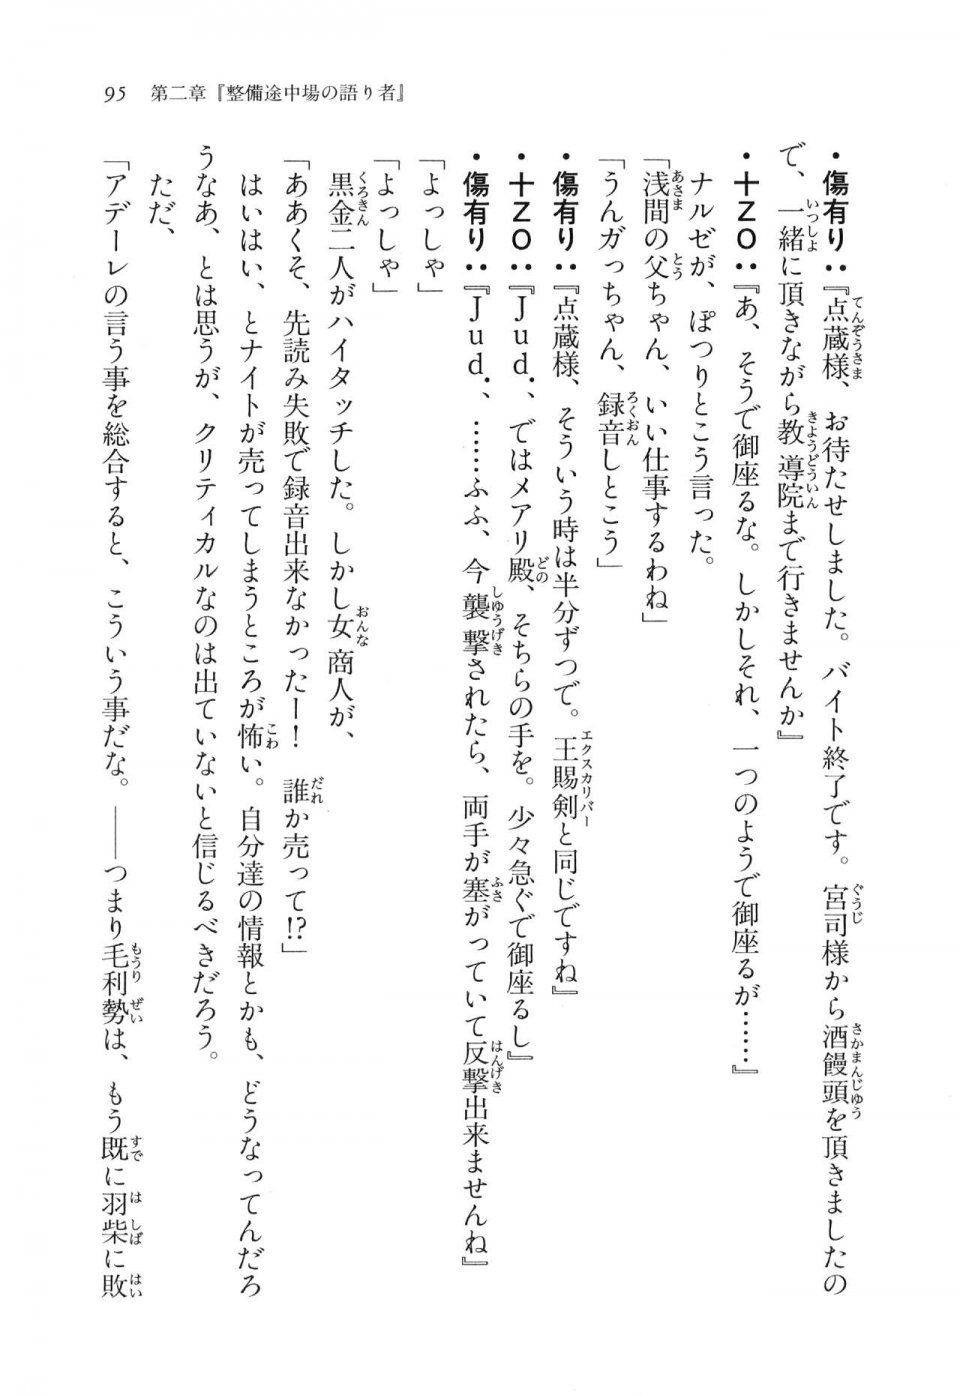 95　第二章『整備途中場の語り者』
・傷有り：『点蔵様、お待たせしました。バイト終了です。宮司様から酒饅頭を頂きましたの
で、一緒に頂きながら教導院まで行きませんか』
・十ＺＯ：『あ、そうで御座るな。しかしそれ、一つのようで御座るが……』
ナルゼが、ぽつりとこう言った。
「浅間の父ちゃん、いい仕事するわね」
「うんガっちゃん、録音しとこう」
・傷有り：『点蔵様、そういう時は半分ずつで。王賜剣と同じですね』
・十ＺＯ：『Ｊｕｄ．、ではメアリ殿、そちらの手を。少々急ぐで御座るし』
・傷有り：『Ｊｕｄ．、……ふふ、今襲撃されたら、両手が塞がっていて反撃出来ませんね』
「よっしゃ」
「よっしゃ」
黒金二人がハイタッチした。しかし女商人が、
「ああくそ、先読み失敗で録音出来なかったー！　誰か売って!?」
はいはい、とナイトが売ってしまうところが怖い。自分達の情報とかも、どうなってんだろ
うなあ、とは思うが、クリティカルなのは出ていないと信じるべきだろう。
ただ、
「アデーレの言う事を総合すると、こういう事だな。――つまり毛利勢は、もう既に羽柴に敗